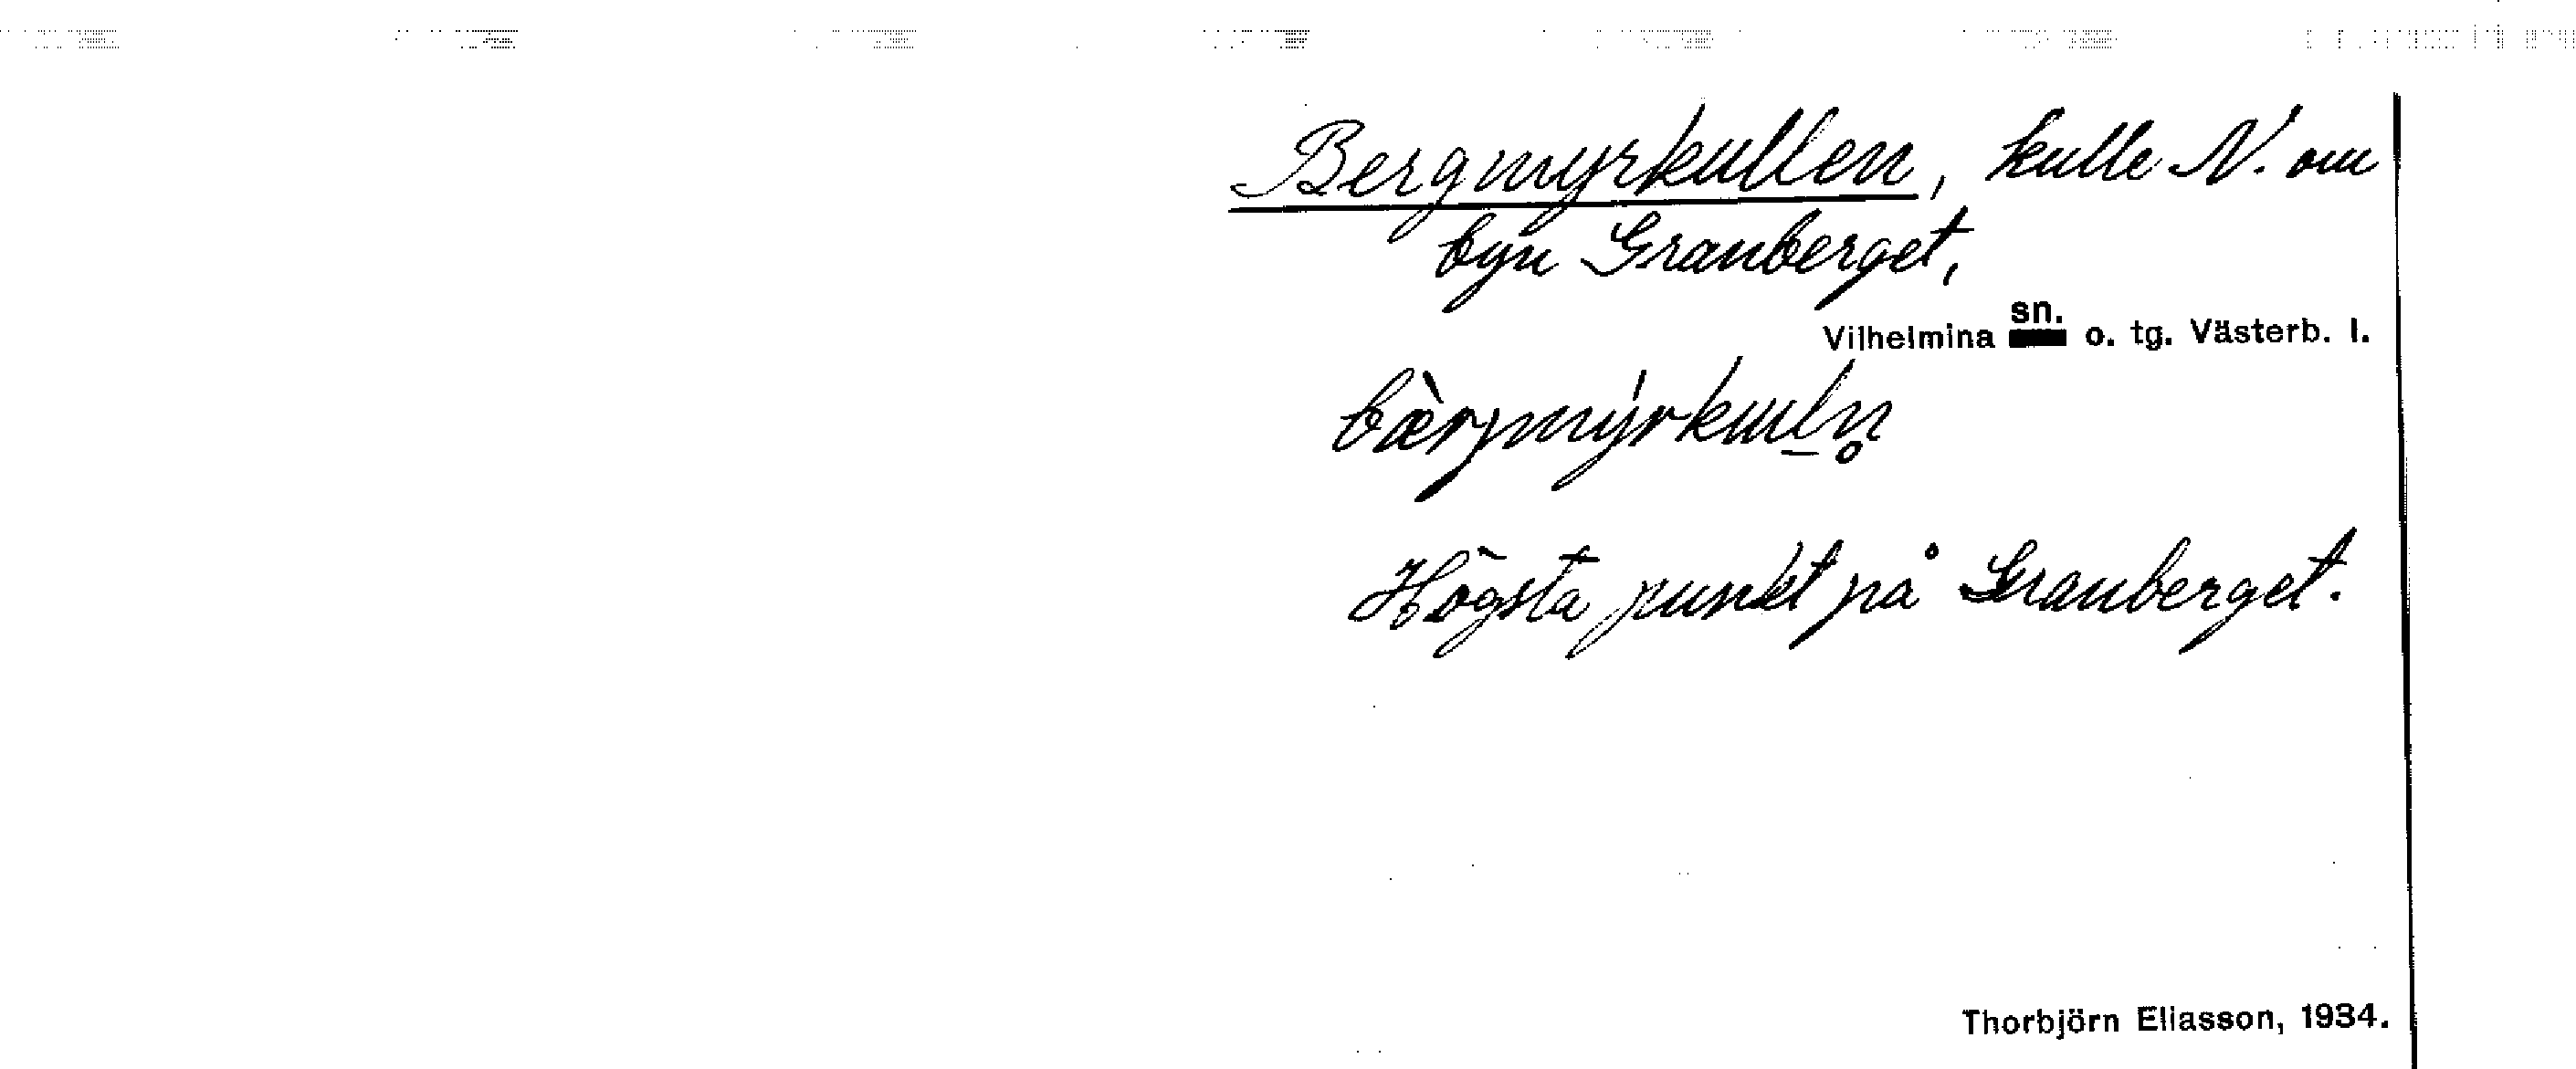 Bergmyrkullen, kulle N. om
byn Granberget,
Vilhelmina sn. o. tg. Västerb. l.
bæ̀rjmýrkul̲n̥
Högsta punkt på Granberget.
Thorbjörn Eliasson, 1934.